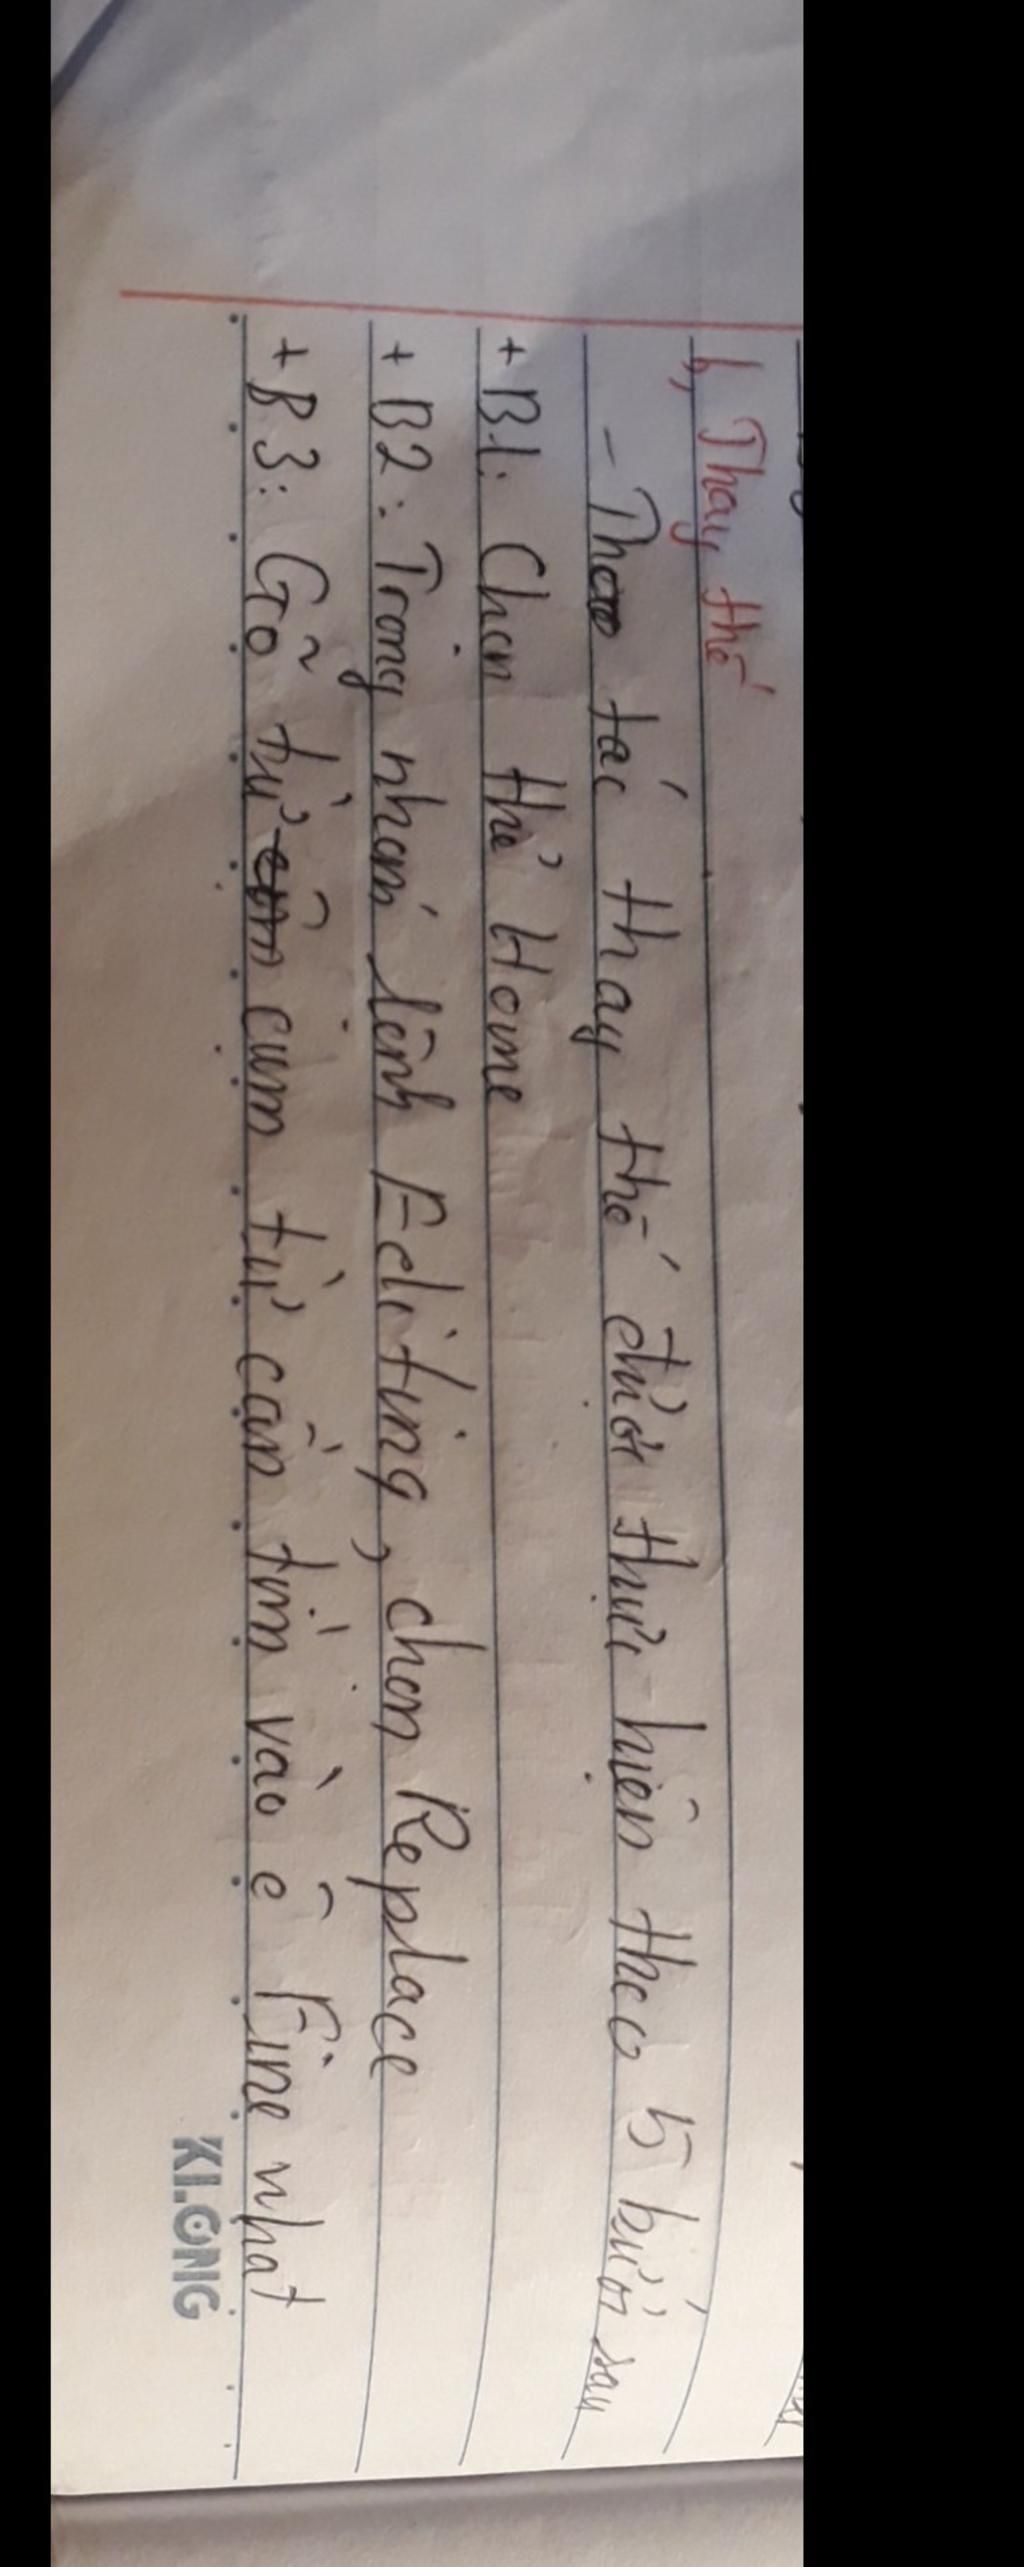 b, Thay thế
- Thao tác thay thế được thực hiện theo 5 bước sau
+ B1: Chọn thẻ Home
+ B2: Trong nhóm lệnh Editing, chọn Replace
+ B3: Gõ từ cụm từ cần tìm vào ê Fine what
KLONG